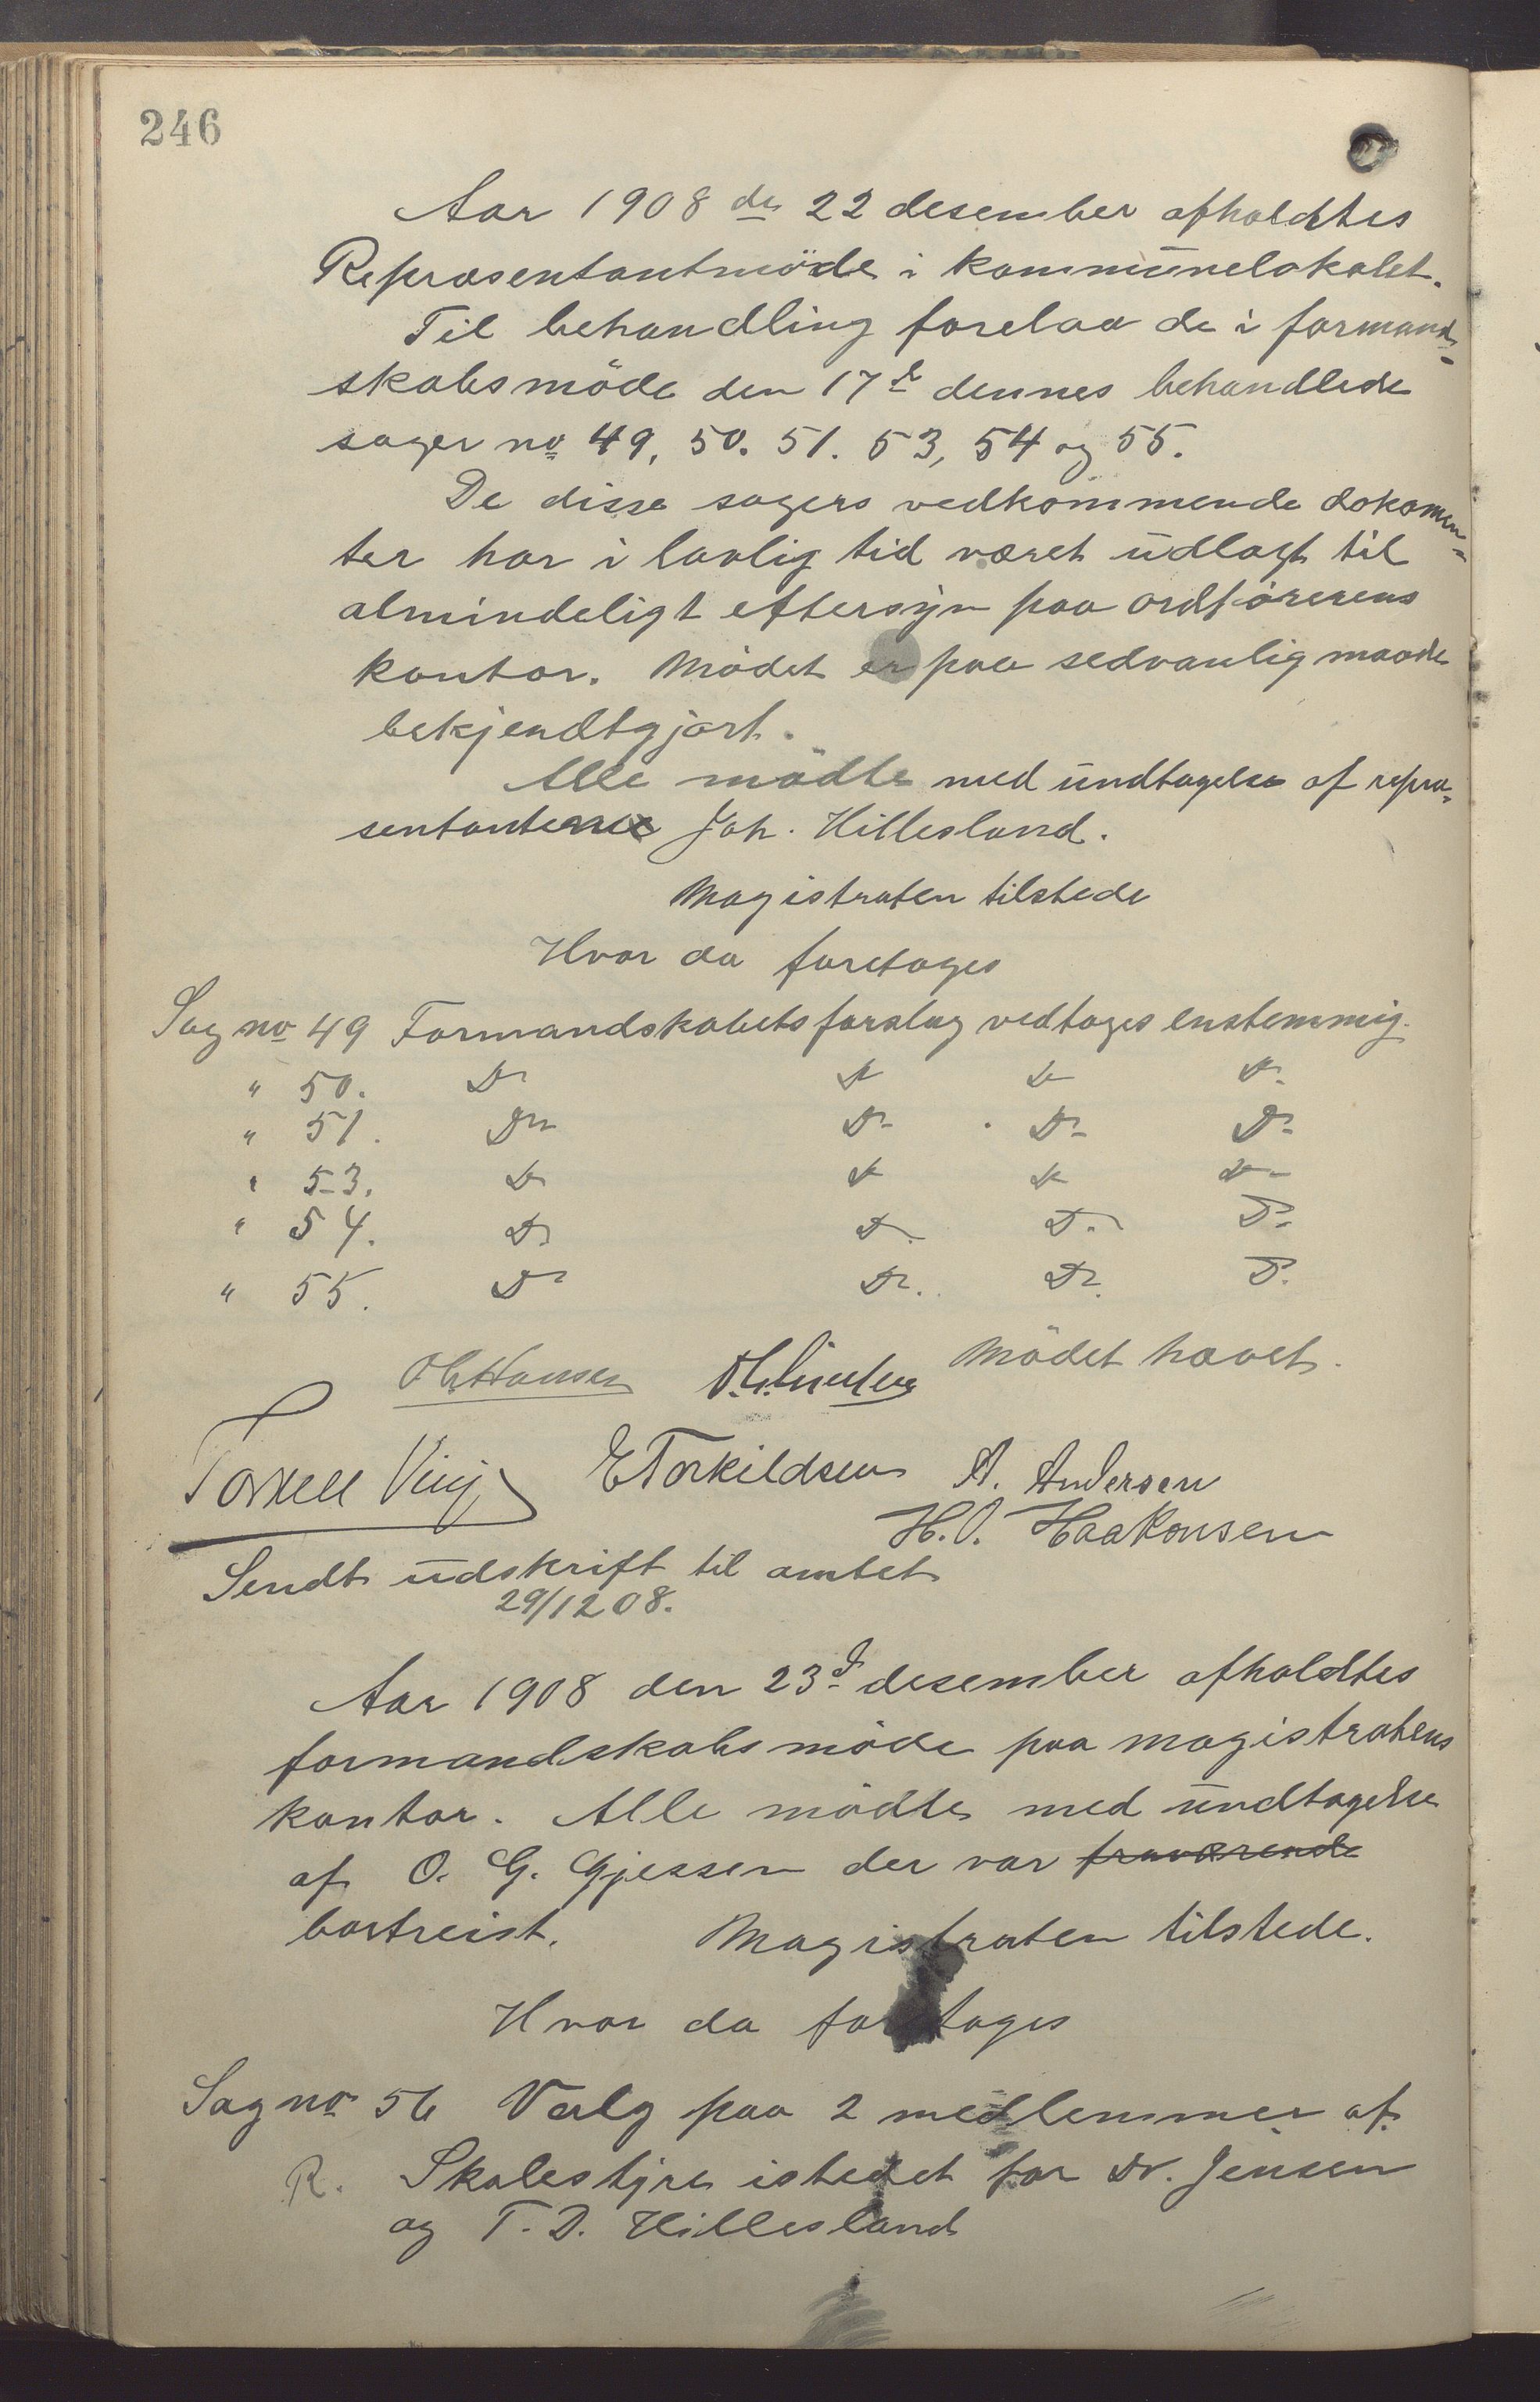 246
Aar 1908 den 22 desember afholdtes
Repræsentantmöde i kommunelokalet.
Til behandling forelaa de i formand-
skabsmöde den 17de dennes behandlede
sager no 49, 50. 51. 53, 54 og 55.
De disse sagers vedkommende dokomen-
ter har i lovlig tid været udlagt til
almindeligt eftersyn paa ordförerens
kontor. Mödet er paa sedvanlig maade
bekjendtgjort.
Alle mödte med undtagelse af repræ-
sentanterne Joh. Hillesland.
Magistraten tilstede
Hvor da foretoges
Sag no 49 Formandskabets forslag vedtoges enstemmig.
" 50. Do Do Do Do
" 51. Do Do Do Do
" 53. Do Do Do Do
" 54. Do Do Do Do
" 55. Do Do Do Do
Mödet hævet.
O Hansen
Torkell Vinje E Torkildsen A. Andersen
H. O. Haakonsen
Sendt udskrift til amtet
29/12 08.
Aar 1908 den 23d desember afholdtes
formandskabsmöde paa magistratens
kontor. Alle mödte med undtagelse
af O. G. Gjessen der var fraværende
bortreist. Magistraten tilstede.
Hvor da foretoges
Sag no 56 Valg paa 2 medlemmer af
R. Skolestyre istedet for Dr. Jensen
og T. D. Hillesland